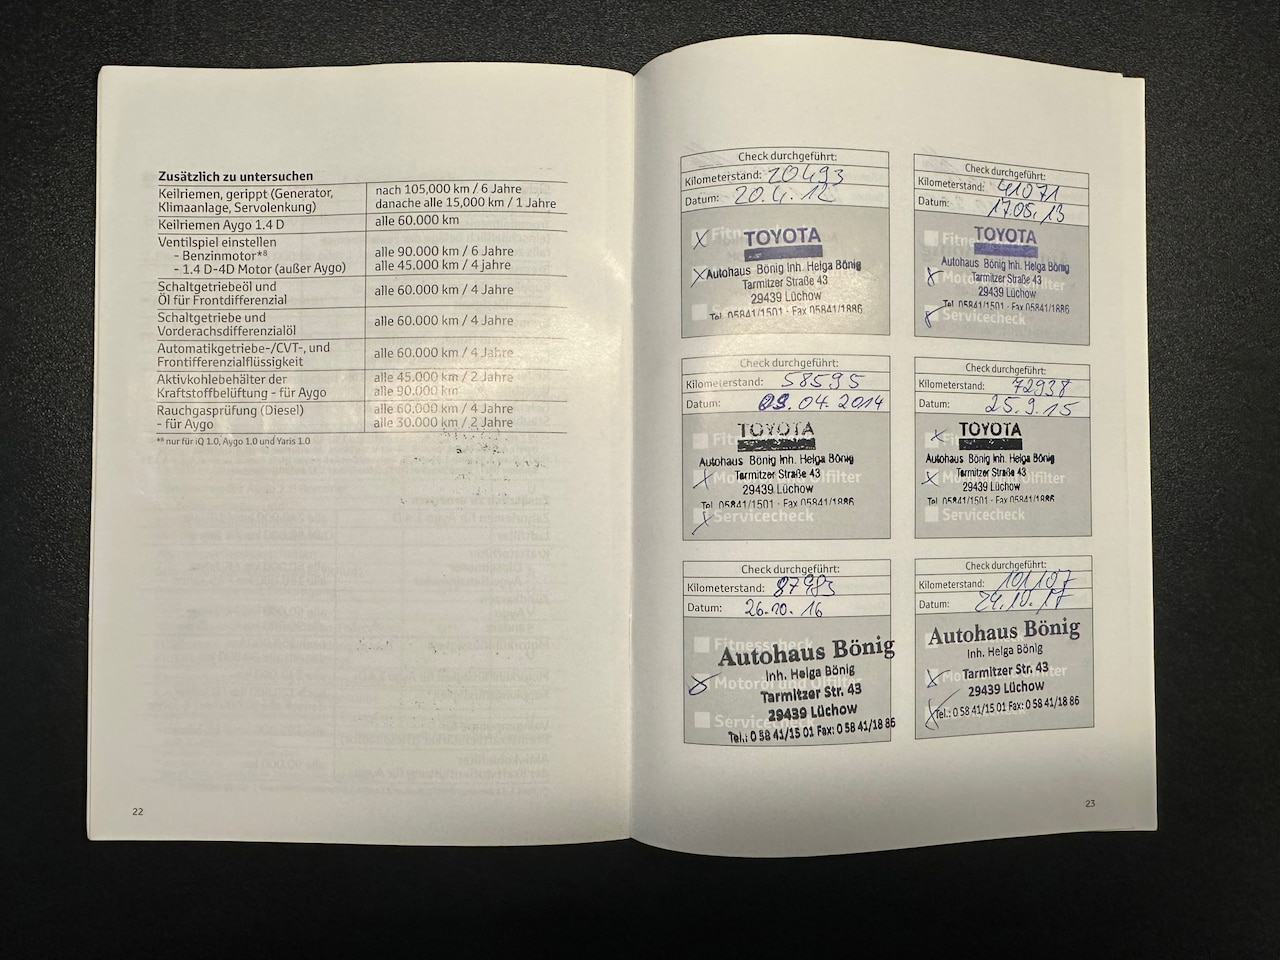 Zusätzlich zu untersuchen
Keilriemen, gerippt (Generator, Klimaanlage, Servolenkung)
nach 105,000 km / 6 Jahre
danache alle 15,000 km / 1 Jahre
Keilriemen Aygo 1.4 D
alle 60.000 km
Ventilspiel einstellen
- Benzinmotor*⁸
alle 90.000 km / 6 Jahre
- 1.4 D-4D Motor (außer Aygo)
alle 45.000 km / 4 jahre
Schaltgetriebeöl und
Öl für Frontdifferenzial
alle 60.000 km / 4 Jahre
Schaltgetriebe und
Vorderachsdifferenzialöl
alle 60.000 km / 4 Jahre
Automatikgetriebe-/CVT-, und
Frontifferenzialflüssigkeit
alle 60.000 km / 4 Jahre
Aktivkohlebehälter der
alle 45.000 km / 2 Jahre
Kraftstoffbelüftung - für Aygo
alle 90.000 km
Rauchgasprüfung (Diesel)
alle 60.000 km / 4 Jahre
- für Aygo
alle 30.000 km / 2 Jahre
*⁸ nur für iQ 1.0, Aygo 1.0 und Yaris 1.0
22
Check durchgeführt:
Kilometerstand: 20493
Datum: 20.4.12
TOYOTA
Autohaus Bönig Inh. Helga Bönig
Tarmitzer Straße 43
29439 Lüchow
Tel. 05841/1501 · Fax 05841/1886
Check durchgeführt:
Kilometerstand: 41071
Datum: 17.05.13
TOYOTA
Autohaus Bönig Inh. Helga Bönig
Tarmitzer Straße 43
29439 Lüchow
Tel. 05841/1501 · Fax 05841/1886
Servicecheck
Check durchgeführt:
Kilometerstand: 58595
Datum: 09.04.2014
TOYOTA
Autohaus Bönig Inh. Helga Bönig
Tarmitzer Straße 43
29439 Lüchow
Tel. 05841/1501 · Fax 05841/1886
Servicecheck
Check durchgeführt:
Kilometerstand: 72938
Datum: 25.9.15
TOYOTA
Autohaus Bönig Inh. Helga Bönig
Tarmitzer Straße 43
29439 Lüchow
Tel. 05841/1501 · Fax 05841/1886
Servicecheck
Check durchgeführt:
Kilometerstand: 87983
Datum: 26.10.16
Fitnesscheck
Autohaus Bönig
Inh. Helga Bönig
Motoröl und Ölfilter
Tarmitzer Str. 43
29439 Lüchow
Servicecheck
Tel.: 0 58 41/15 01 Fax: 0 58 41/18 86
Check durchgeführt:
Kilometerstand: 101107
Datum: 24.10.17
Autohaus Bönig
Inh. Helga Bönig
Tarmitzer Str. 43
29439 Lüchow
Tel.: 0 58 41/15 01 Fax: 0 58 41/18 86
23